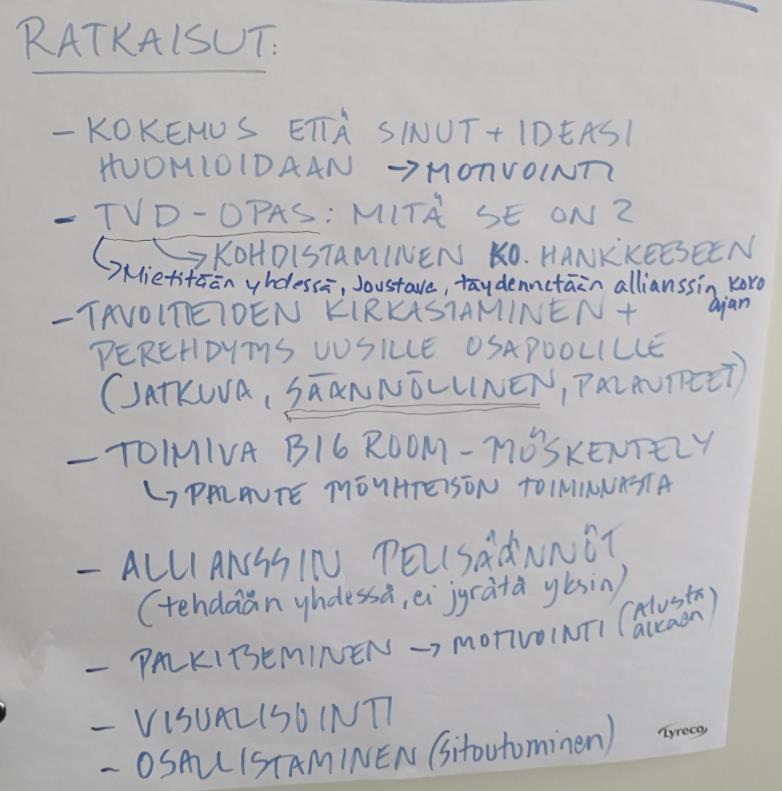 RATKAISUT:
- KOKEMUS ETTÄ SINUT + IDEASI
HUOMIOIDAAN → MOTIVOINTI
- TVD-OPAS: MITÄ SE ON?
↳ KOHDISTAMINEN KO. HANKKEESEEN
↳ Mietitään yhdessä, Joustava, täydennetään allianssin koko
ajan
- TAVOITTEIDEN KIRKASTAMINEN +
PEREHDYTYS UUSILLE OSAPUOLILLE
(JATKUVA, SÄÄNNÖLLINEN, PALAUTTEET)
- TOIMIVA BIG ROOM - TYÖSKENTELY
↳ PALAUTE TYÖYHTEISÖN TOIMINNASTA
- ALLIANSSIN PELISÄÄNNÖT
(tehdään yhdessä, ei jyrätä yksin)
- PALKITSEMINEN → MOTIVOINTI (Alusta
alkaen)
- VISUALISOINTI
- OSALLISTAMINEN (sitoutuminen)
Lyreco